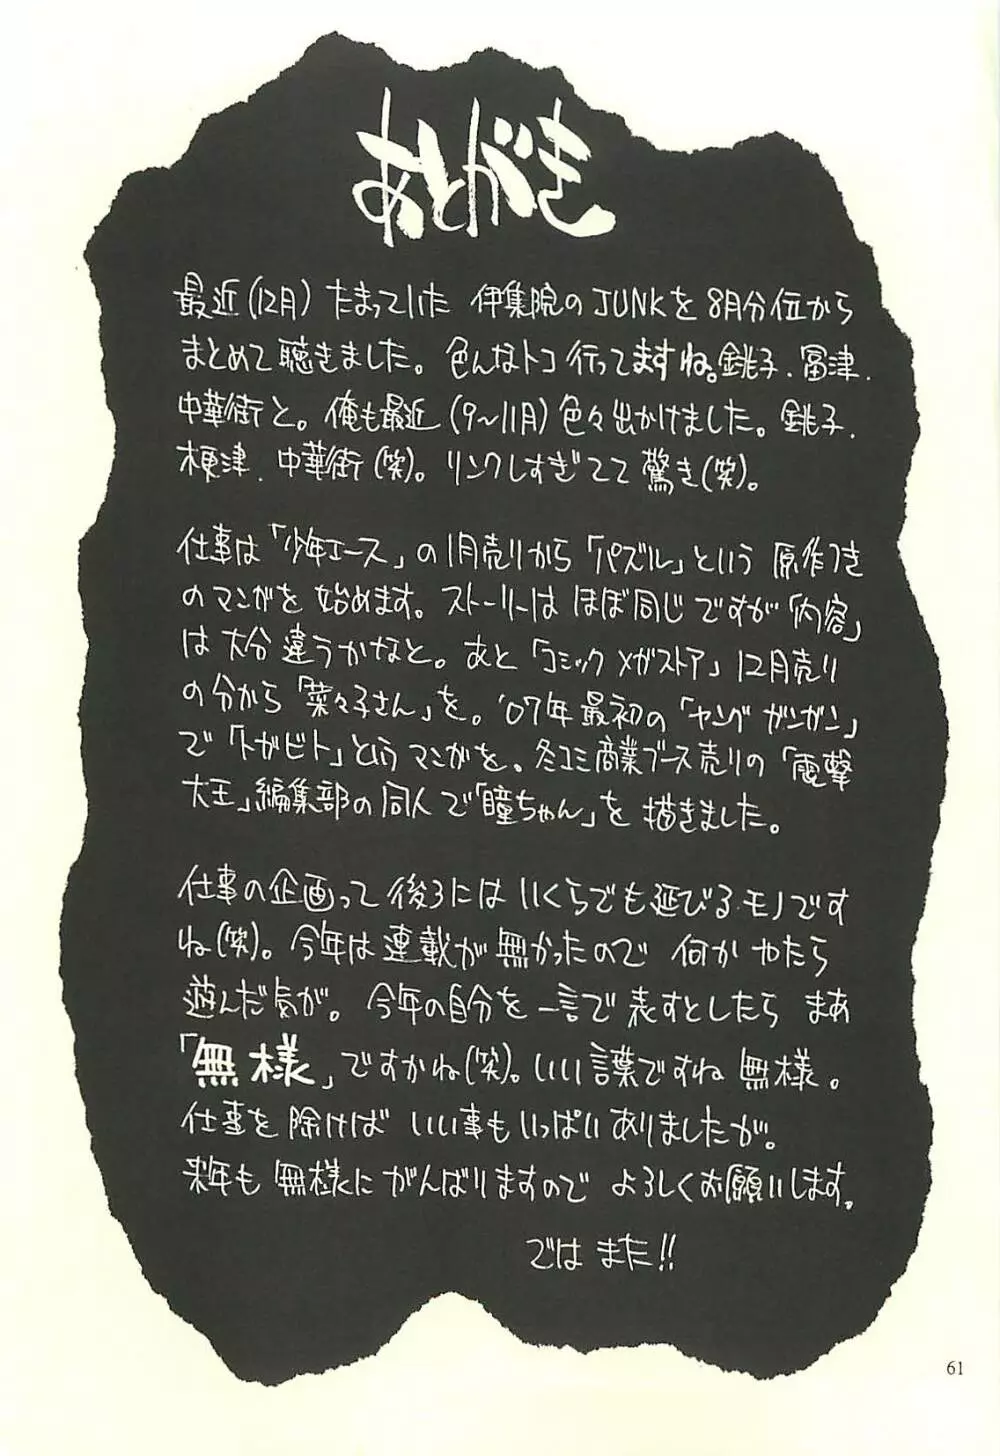 あとがき
最近(12月)たまっていた 伊集院のJUNKを8月分位から
まとめて聴きました。色んなトコ行ってますね。銚子.冨津.
中華街と。俺も最近(9~11月)色々出かけました。銚子.
木更津.中華街(笑)。リンクしすぎてて驚き(笑)。
仕事は「少年エース」の1月売りから「パズル」という 原作つき
のマンガを始めます。ストーリーは ほぼ同じですが「内容」
は大分違うかなと。あと「コミックメガストア」12月売り
の分から「菜々子さん」を。'07年最初の「ヤングガンガン」
で「トガビト」というマンガを。冬コミ商業ブース売りの「電撃
大王」編集部の同人で「瞳ちゃん」を描きました。
仕事の企画って後ろにはいくらでも延びるモノです
ね(笑)。今年は連載が無かったので 何かやたら
遊んだ気が。今年の自分を一言で表すとしたら まあ
「無様」ですかね(笑)。いい言葉ですね 無様。
仕事を除けば いい事もいっぱいありましたが。
来年も 無様にがんばりますので よろしくお願いします。
では また!!
61